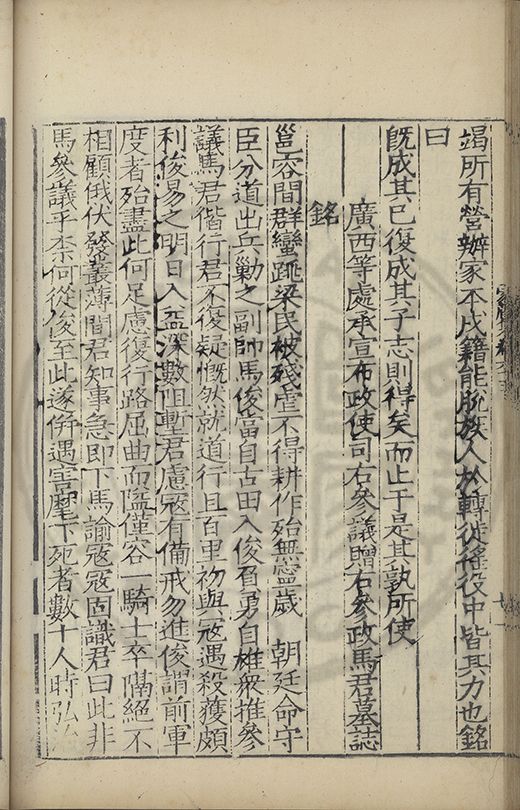 竭所有營辦家不戍籍能脫族人於轉徙徭役中皆其力也銘
曰
旣成其己復成其子志則得矣而止于是其孰所使
廣西等處承宣布政使司右參議贈右參政馬君墓誌
銘
邕容間群蠻跳梁民被殘虐不得耕作殆無寧歲 朝廷命守
臣分道出兵勦之副帥馬俊當自古田入俊負勇自雄衆推參
議馬君偕行君不復疑慨然就道行且百里初與寇遇殺獲頗
利俊易之明日入益深數阻塹君慮寇有備戒勿進俊謂前軍
度者殆盡此何足慮復行路屈曲而隘僅容一騎士卒隔絕不
相顧俄伏發叢薄間君知事急即下馬諭寇寇固識君曰此非
馬參議乎柰何從俊至此遂併遇害麾下死者數十人時弘治